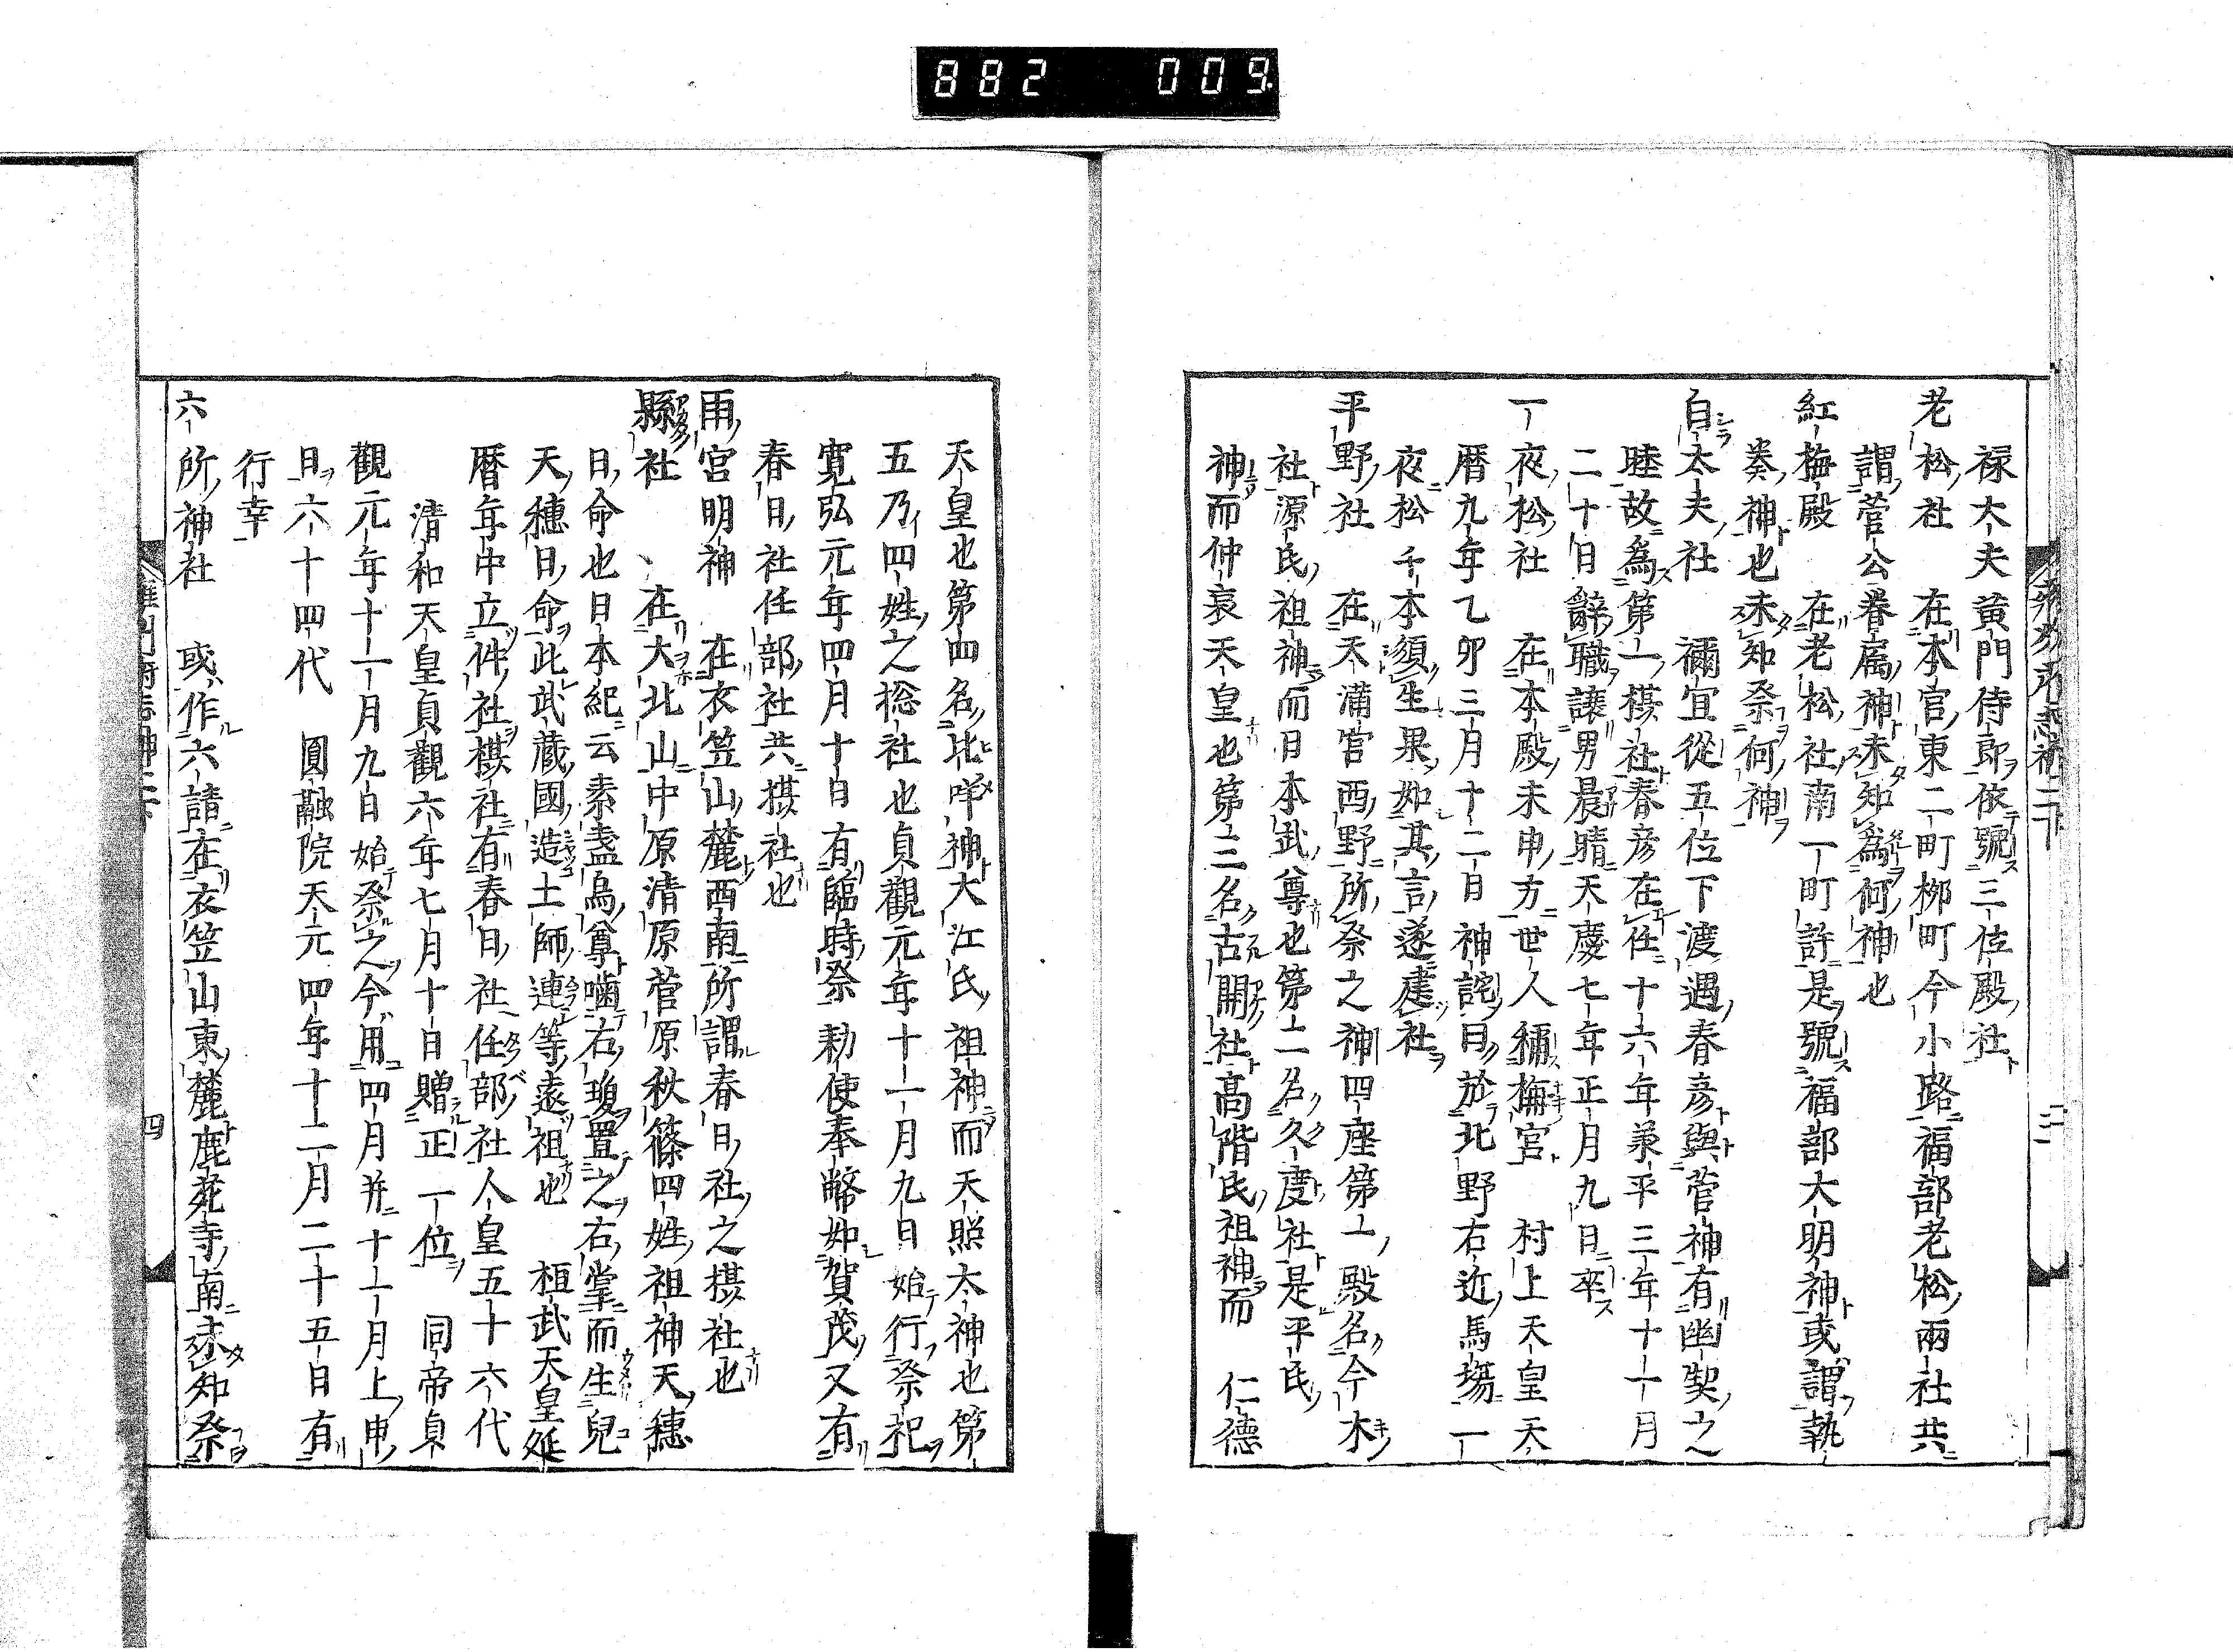 882 009
祿大夫黃門侍郎依號三位殿社
老松社 在本宮東二町栁町今小路福部老松兩社共
謂菅公眷属神未知為何神也
紅梅殿 在老松社南一町許是號福部大明神或謂執
奏神也未知祭何神
白太夫社 禰宜從五位下渡遇春彦與菅神有幽契之
睦故為第一攝社春彦在任十六年兼平三年十一月
二十日辭職讓男晨晴天慶七年正月九日卒
一夜松社 在本殿未申方世人稱梅宮 村上天皇天
暦九年乙卯三月十二日神託曰於北野右近馬塲一
夜松千本須生果如其言遂建社
平野社 在天滿宮西野所祭之神四座第一殿名今木
社源氏祖神而日本武尊也第二名久度社是平氏
神而仲哀天皇也第三名古開社高階氏祖神而 仁德
天皇也第四名比咩神大江氏祖神而天照太神也第
五乃四姓之捴社也貞觀元年十一月九日始行祭祀
寬弘元年四月十日有臨時祭勑使奉幣如賀茂又有
春日社任部社共攝社也
雨宮明神 在衣笠山麓西南所謂春日社之攝社也
縣社 在大北山中原清原菅原秋篠四姓祖神天穗
日命也日本紀云素盞烏尊噛右瓊置之右掌而生兒
天穗日命此武蔵國造土師連等遠祖也 桓武天皇延
暦年中立件社攝社有春日社任部社人皇五十六代
清和天皇貞觀六年七月十日贈正一位 同帝貞
觀元年十一月九日始祭之今用四月并十一月上申
日六十四代 圓融院天元四年十二月二十五日有
行幸
六所神社 或作六請在衣笠山東麓鹿苑寺南未知祭
四